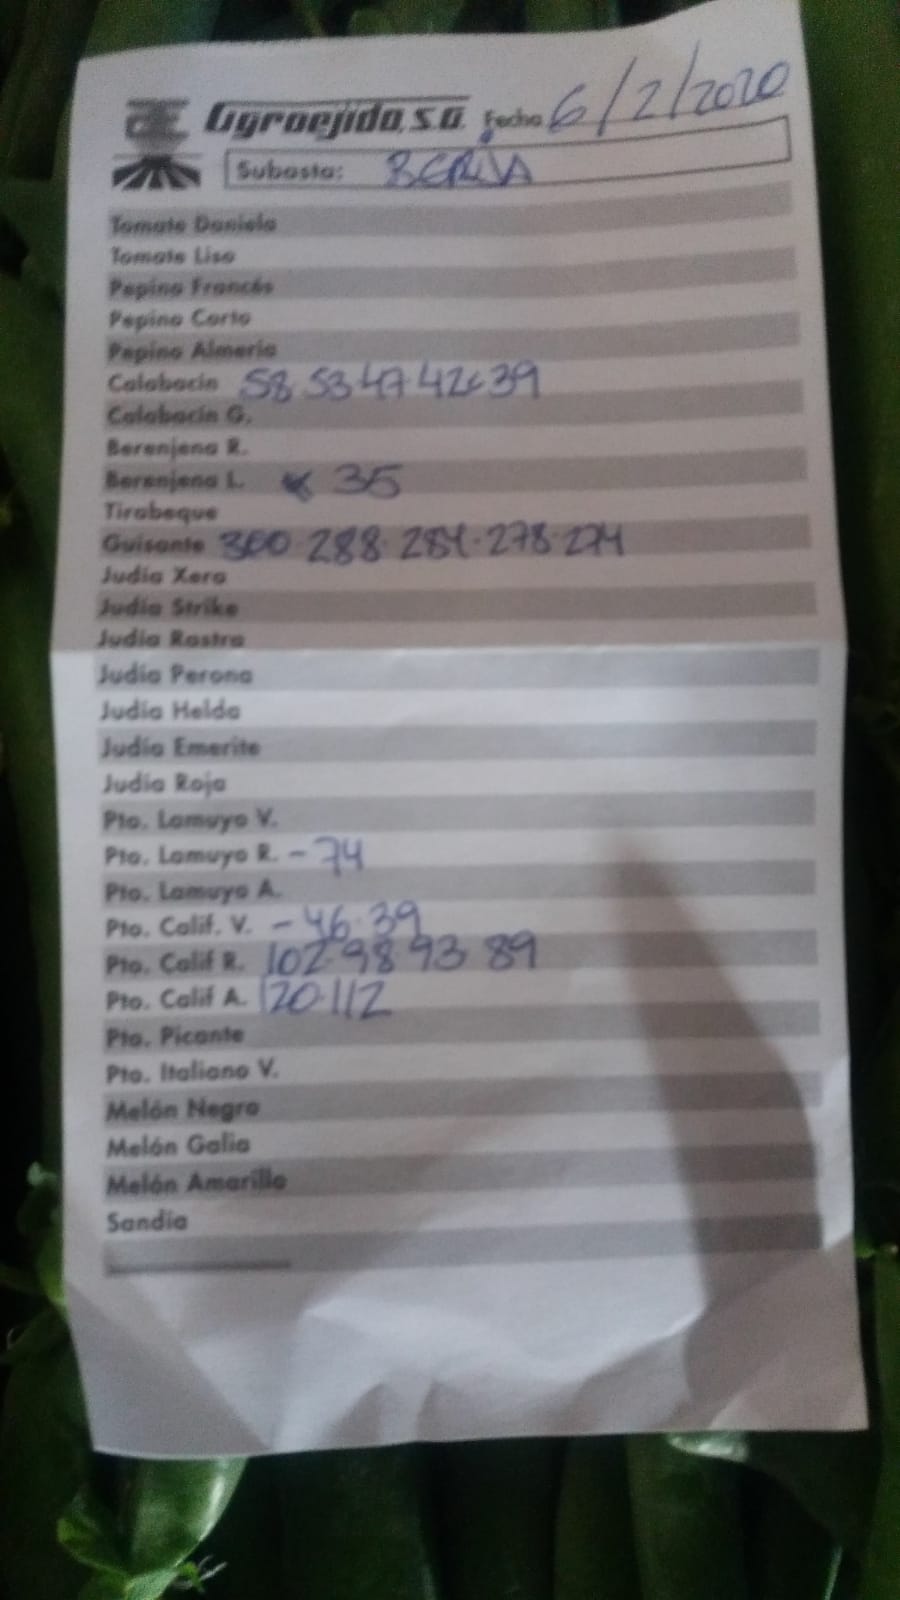 Agroejido, S.A. Fecha 6/2/2020
Subasta: BERJA
Tomate Daniela
Tomate Liso
Pepino Francés
Pepino Corto
Pepino Almeria
Calabacín 58 53 47 42 39
Calabacín G.
Berenjena R.
Berenjena L. 35
Tirabeque
Guisante 300 288 284 278 274
Judía Xera
Judía Strike
Judía Rastra
Judía Perona
Judía Helda
Judía Emerite
Judía Roja
Pto. Lamuyo V.
Pto. Lamuyo R. - 74
Pto. Lamuyo A.
Pto. Calif. V. - 46 39
Pto. Calif R. 102 98 93 89
Pto. Calif A. 120 112
Pto. Picante
Pto. Italiano V.
Melón Negro
Melón Galia
Melón Amarillo
Sandía